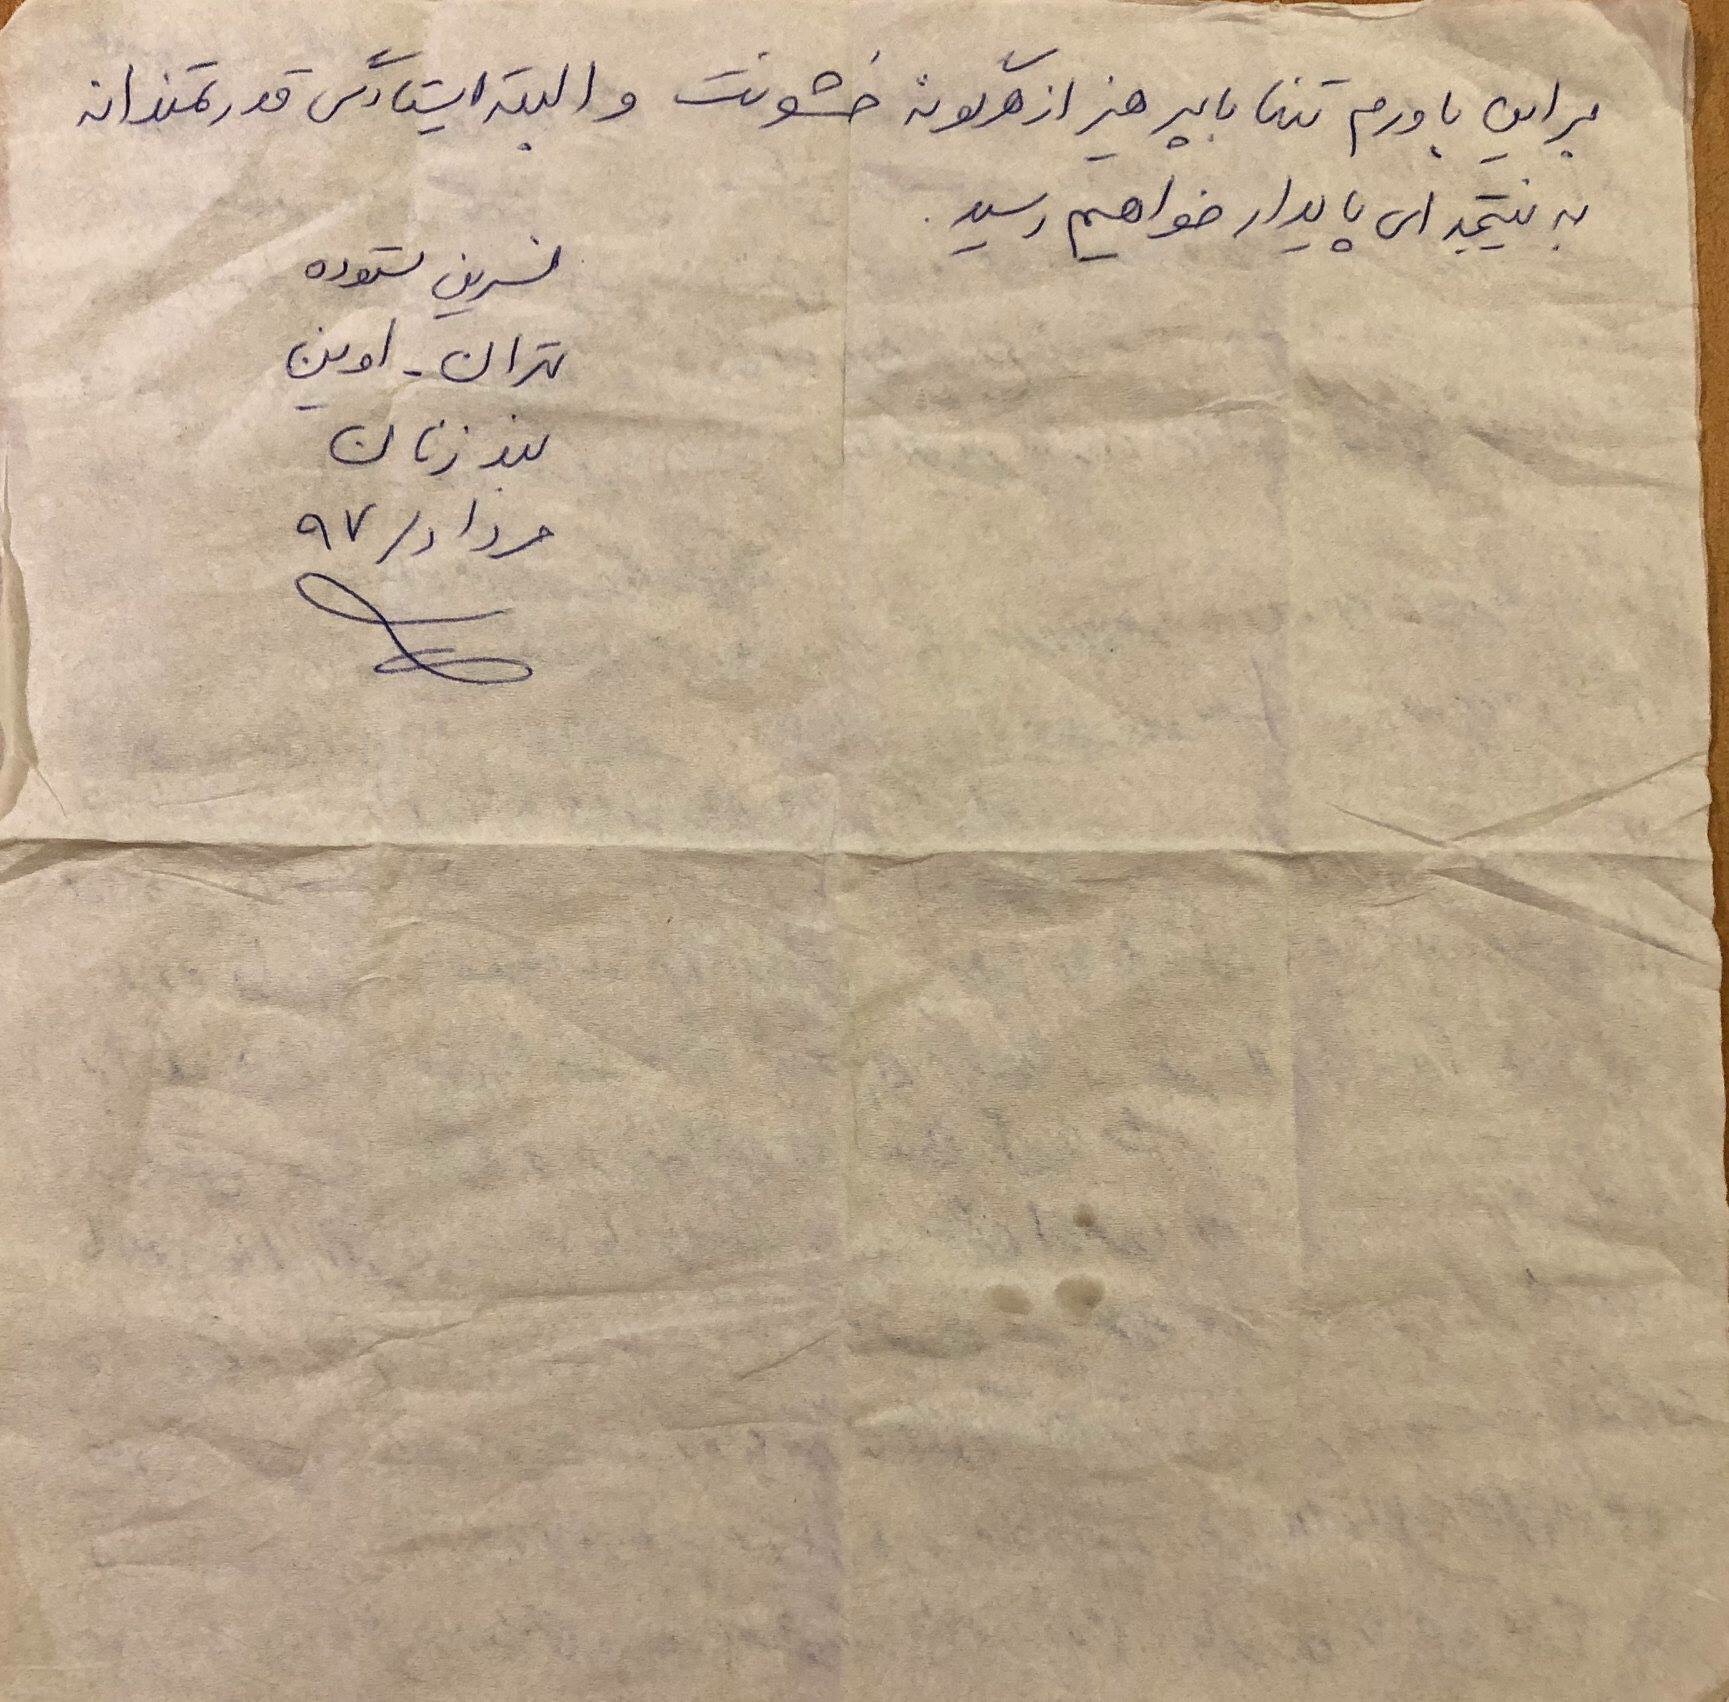 بر این باورم تنها با پرهیز از هرگونه خشونت و البته ایستادگی قدرتمندانه
به نتیجه ای پایدار خواهیم رسید.
نسرین ستوده
تهران - اوین
بند زنان
مرداد/ ۹۷